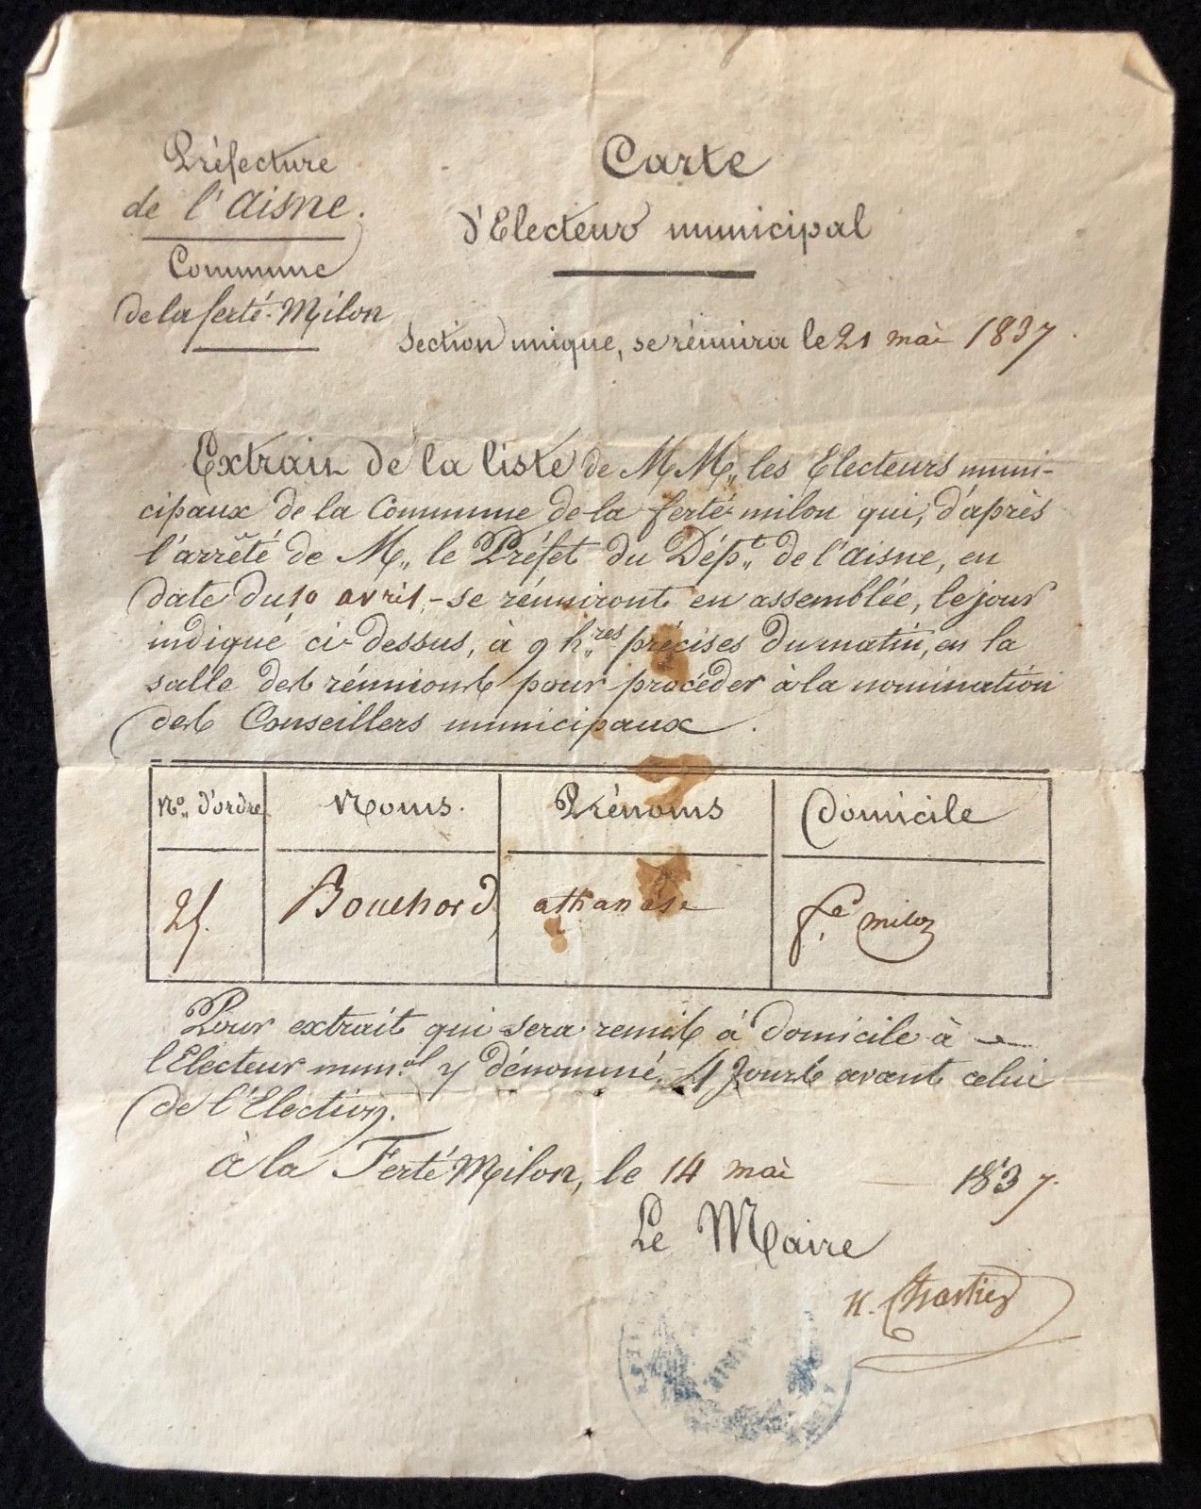 Préfecture
de l'Aisne.
Commune
de la ferté-Milon
Carte
d'Electeur municipal
Section unique, se réunira le 21 mai 1837.
Extrait de la liste de MM,, les Electeurs muni-
cipaux de la Commune de la ferté milon qui, d'après
l'arrêté de M,, le Préfet du Dép.t de l'aisne, en
date du 10 avril, - se réuniront en assemblée, le jour
indiqué ci-dessus, à 9 h.res précises du matin, en la
salle des réunions pour procéder à la nomination
des Conseillers municipaux.
No,, d'ordre Noms. Prénoms Domicile
Bouchard athanase f.é milon
Pour extrait qui sera remis à domicile à
l'Electeur mun.al y dénommé, 4 Jours avant celui
de l'Election.
à la Ferté Milon, le 14 mai 1837.
Le Maire